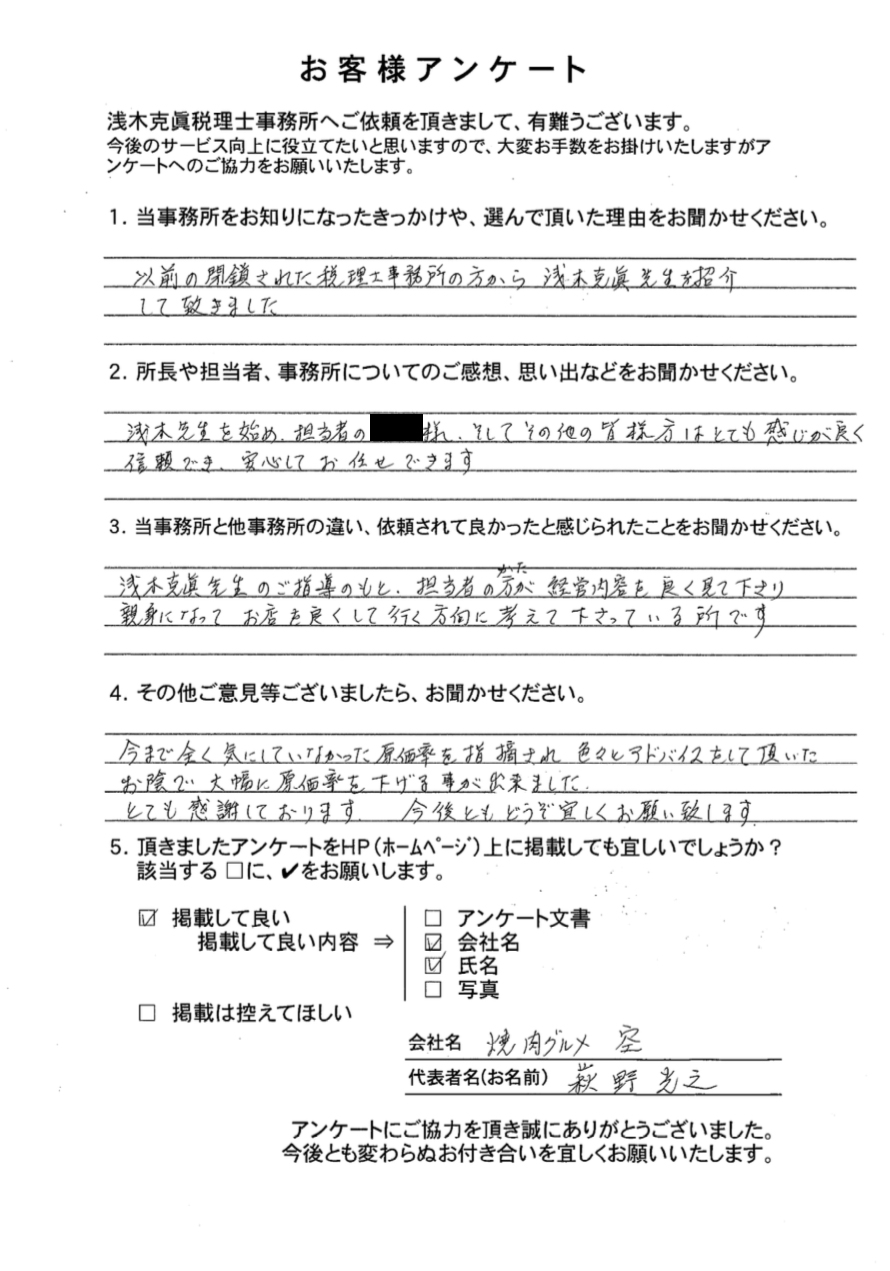 お客様アンケート
浅木克眞税理士事務所へご依頼を頂きまして、有難うございます。
今後のサービス向上に役立てたいと思いますので、大変お手数をお掛けいたしますがア
ンケートへのご協力をお願いいたします。
1. 当事務所をお知りになったきっかけや、選んで頂いた理由をお聞かせください。
以前の閉鎖された税理士事務所の方から 浅木克眞先生を紹介
して致きました
2. 所長や担当者、事務所についてのご感想、思い出などをお聞かせください。
浅木先生を始め、担当者の 様、そしてその他の皆様方はとても感じが良く
信頼でき、安心してお任せできます
3. 当事務所と他事務所の違い、依頼されて良かったと感じられたことをお聞かせください。
浅木克眞先生のご指導のもと、担当者の方が 経営内容を良く見て下さり
かた
親身になって お店を良くして行く方向に考えて下さっている所です
4. その他ご意見等ございましたら、お聞かせください。
今まで全く気にしていなかった原価率を指摘され 色々とアドバイスをして頂いた
お陰で 大幅に原価率を下げる事が出来ました。
とても感謝しております。 今後ともどうぞ宜しくお願い致します
5. 頂きましたアンケートをHP(ホームページ)上に掲載しても宜しいでしょうか?
該当する □に、✔をお願いします。
☑ 掲載して良い
掲載して良い内容 ⇒
□ アンケート文書
☑ 会社名
☑ 氏名
□ 写真
□ 掲載は控えてほしい
会社名 焼肉グルメ 空
代表者名(お名前) 萩野 光之
アンケートにご協力を頂き誠にありがとうございました。
今後とも変わらぬお付き合いを宜しくお願いいたします。